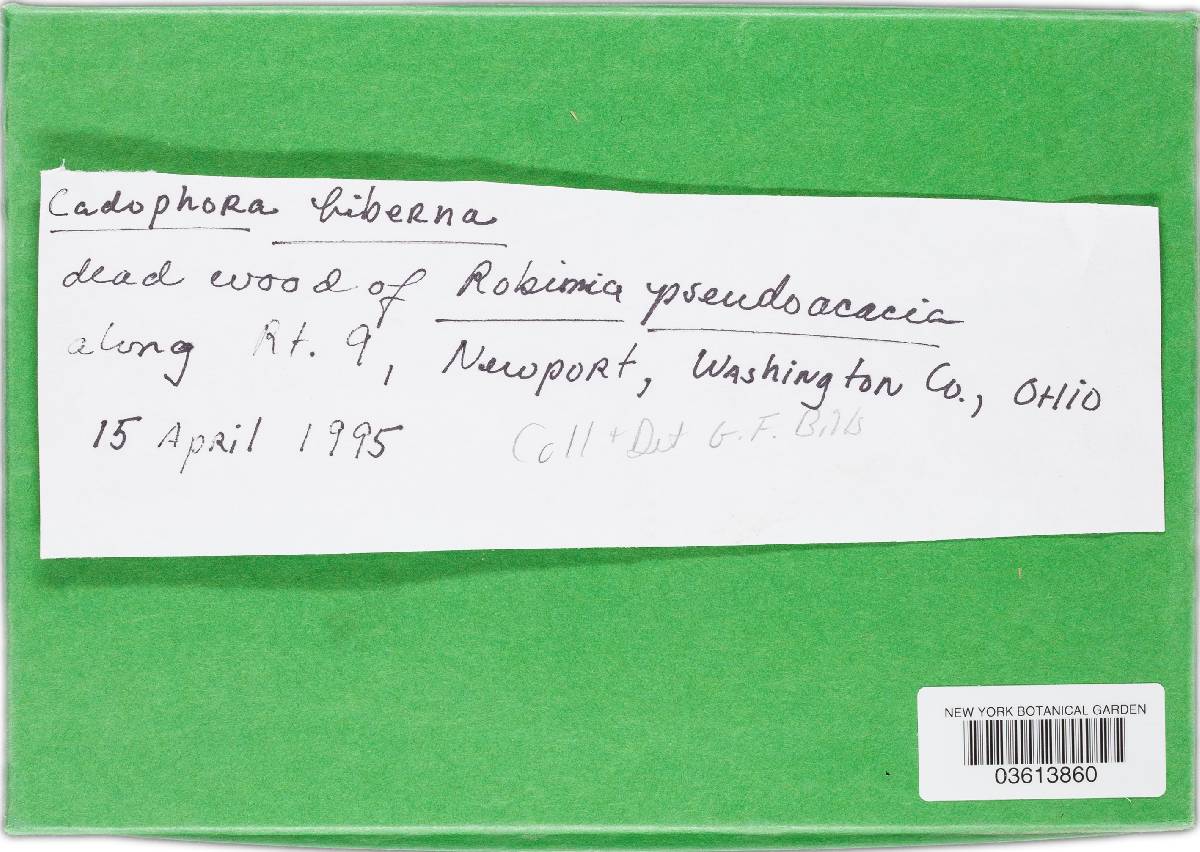 Cadophora hiberna
dead wood of Robinia pseudoacacia
along Rt. 9, Newport, Washington Co., OHio
15 April 1995 Coll + Det G.F. Bills
NEW YORK BOTANICAL GARDEN
03613860